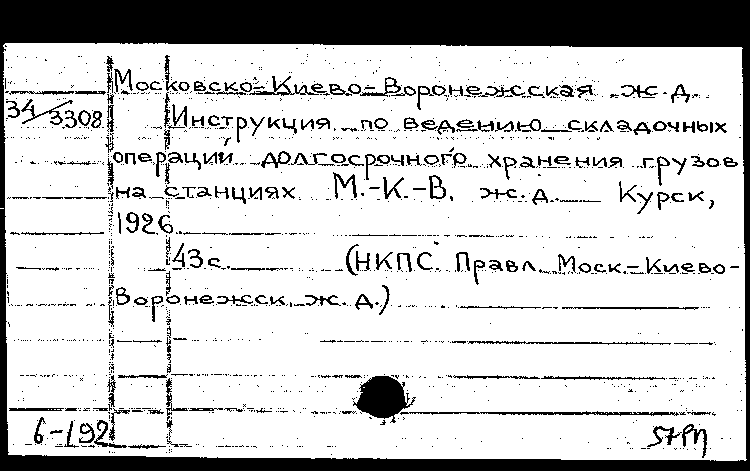 Московско-Киево-Воронежсская ж.д.
34/3308 Инструкция по ведению складочных
операций долгосрочного хранения грузов
на станциях М.-К.-В. ж.д. Курск,
1926
43с. (НКПС. Правл. Моск.-Киево-
Воронежск. ж.д.)
6-192